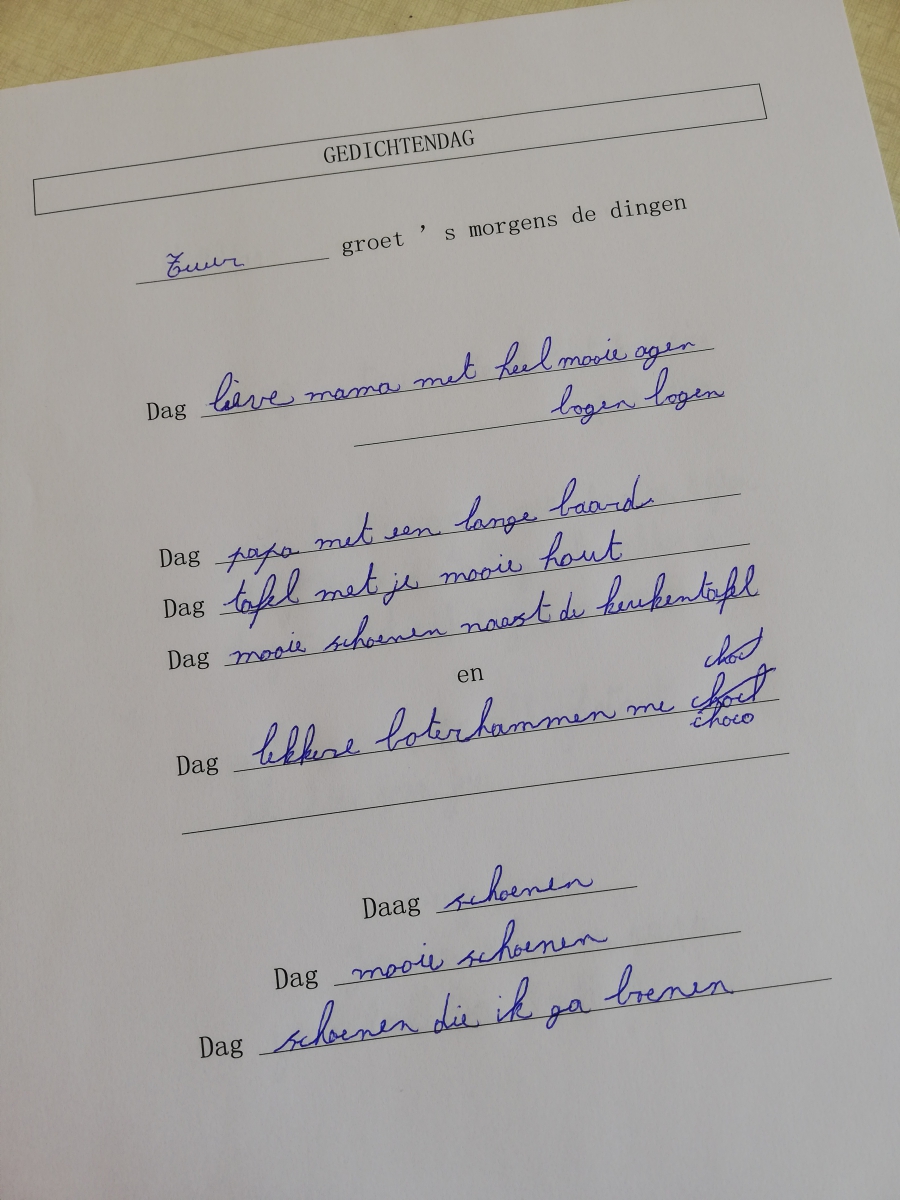 GEDICHTENDAG
Tuur groet ' s morgens de dingen
Dag lieve mama met heel mooie ogen
bogen bogen
Dag papa met een lange baard
Dag tafel met je mooie hout
Dag mooie schoenen naast de keukentafel
en
choct
Dag lekkere boterhammen me choct
choco
Daag schoenen
Dag mooie schoenen
Dag schoenen die ik ga boenen